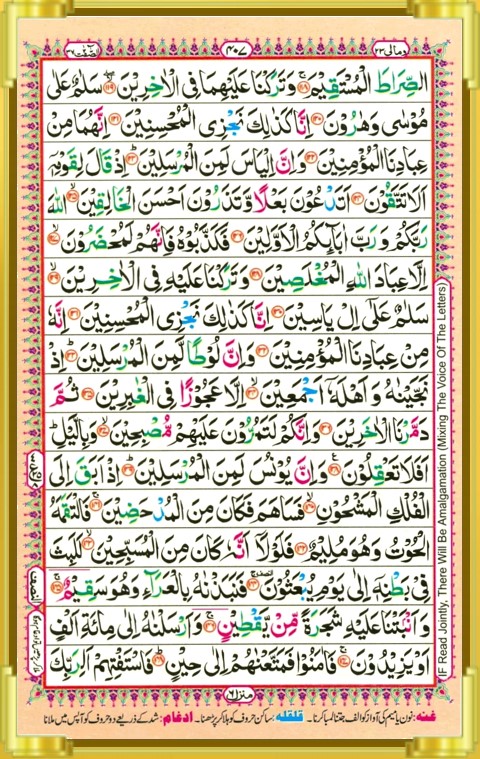 ومالى ٢٣
٤٠٧
الصّٰفّٰت ٣٧
الصِّرَاطَ الْمُسْتَقِيْمَ ۝ وَتَرَكْنَا عَلَيْهِمَا فِى الْاٰخِرِيْنَ ۝ سَلٰمٌ عَلٰى
مُوْسٰى وَهٰرُوْنَ ۝ اِنَّا كَذٰلِكَ نَجْزِى الْمُحْسِنِيْنَ ۝ اِنَّهُمَا مِنْ
عِبَادِنَا الْمُؤْمِنِيْنَ ۝ وَاِنَّ اِلْيَاسَ لَمِنَ الْمُرْسَلِيْنَ ۝ اِذْ قَالَ لِقَوْمِهٖۤ
اَلَا تَتَّقُوْنَ ۝ اَتَدْعُوْنَ بَعْلًا وَّتَذَرُوْنَ اَحْسَنَ الْخَالِقِيْنَ ۝ اللّٰهَ
رَبَّكُمْ وَرَبَّ اٰبَآئِكُمُ الْاَوَّلِيْنَ ۝ فَكَذَّبُوْهُ فَاِنَّهُمْ لَمُحْضَرُوْنَ ۝
اِلَّا عِبَادَ اللّٰهِ الْمُخْلَصِيْنَ ۝ وَتَرَكْنَا عَلَيْهِ فِى الْاٰخِرِيْنَ ۝
سَلٰمٌ عَلٰٓى اِلْ يَاسِيْنَ ۝ اِنَّا كَذٰلِكَ نَجْزِى الْمُحْسِنِيْنَ ۝ اِنَّهٗ
مِنْ عِبَادِنَا الْمُؤْمِنِيْنَ ۝ وَاِنَّ لُوْطًا لَّمِنَ الْمُرْسَلِيْنَ ۝ اِذْ
نَجَّيْنٰهُ وَاَهْلَهٗۤ اَجْمَعِيْنَ ۝ اِلَّا عَجُوْزًا فِى الْغٰبِرِيْنَ ۝ ثُمَّ
دَمَّرْنَا الْاٰخَرِيْنَ ۝ وَاِنَّكُمْ لَتَمُرُّوْنَ عَلَيْهِمْ مُّصْبِحِيْنَ ۝ وَبِالَّيْلِ ؕ
اَفَلَا تَعْقِلُوْنَ ۝ وَاِنَّ يُوْنُسَ لَمِنَ الْمُرْسَلِيْنَ ۝ اِذْ اَبَقَ اِلَى
الْفُلْكِ الْمَشْحُوْنِ ۝ فَسَاهَمَ فَكَانَ مِنَ الْمُدْحَضِيْنَ ۝ فَالْتَقَمَهُ
الْحُوْتُ وَهُوَ مُلِيْمٌ ۝ فَلَوْلَاۤ اَنَّهٗ كَانَ مِنَ الْمُسَبِّحِيْنَ ۝ لَلَبِثَ
فِىْ بَطْنِهٖۤ اِلٰى يَوْمِ يُبْعَثُوْنَ ۝ فَنَبَذْنٰهُ بِالْعَرَآءِ وَهُوَ سَقِيْمٌ ۝
وَاَنْۢبَتْنَا عَلَيْهِ شَجَرَةً مِّنْ يَّقْطِيْنٍ ۝ وَاَرْسَلْنٰهُ اِلٰى مِائَةِ اَلْفٍ
اَوْ يَزِيْدُوْنَ ۝ فَاٰمَنُوْا فَمَتَّعْنٰهُمْ اِلٰى حِيْنٍ ۝ فَاسْتَفْتِهِمْ اَلِرَبِّكَ
منزل ٦
IF Read Jointly, There Will Be Amalgamation (Mixing The Voice Of The Letters)
غنه: نون یا میم کی آواز کو الف جتنا لمبا کرنا۔ قلقله: ساکن حروف کو ہلا کر پڑھنا۔ ادغام: شد کے ذریعے دو حروف کو آپس میں ملانا